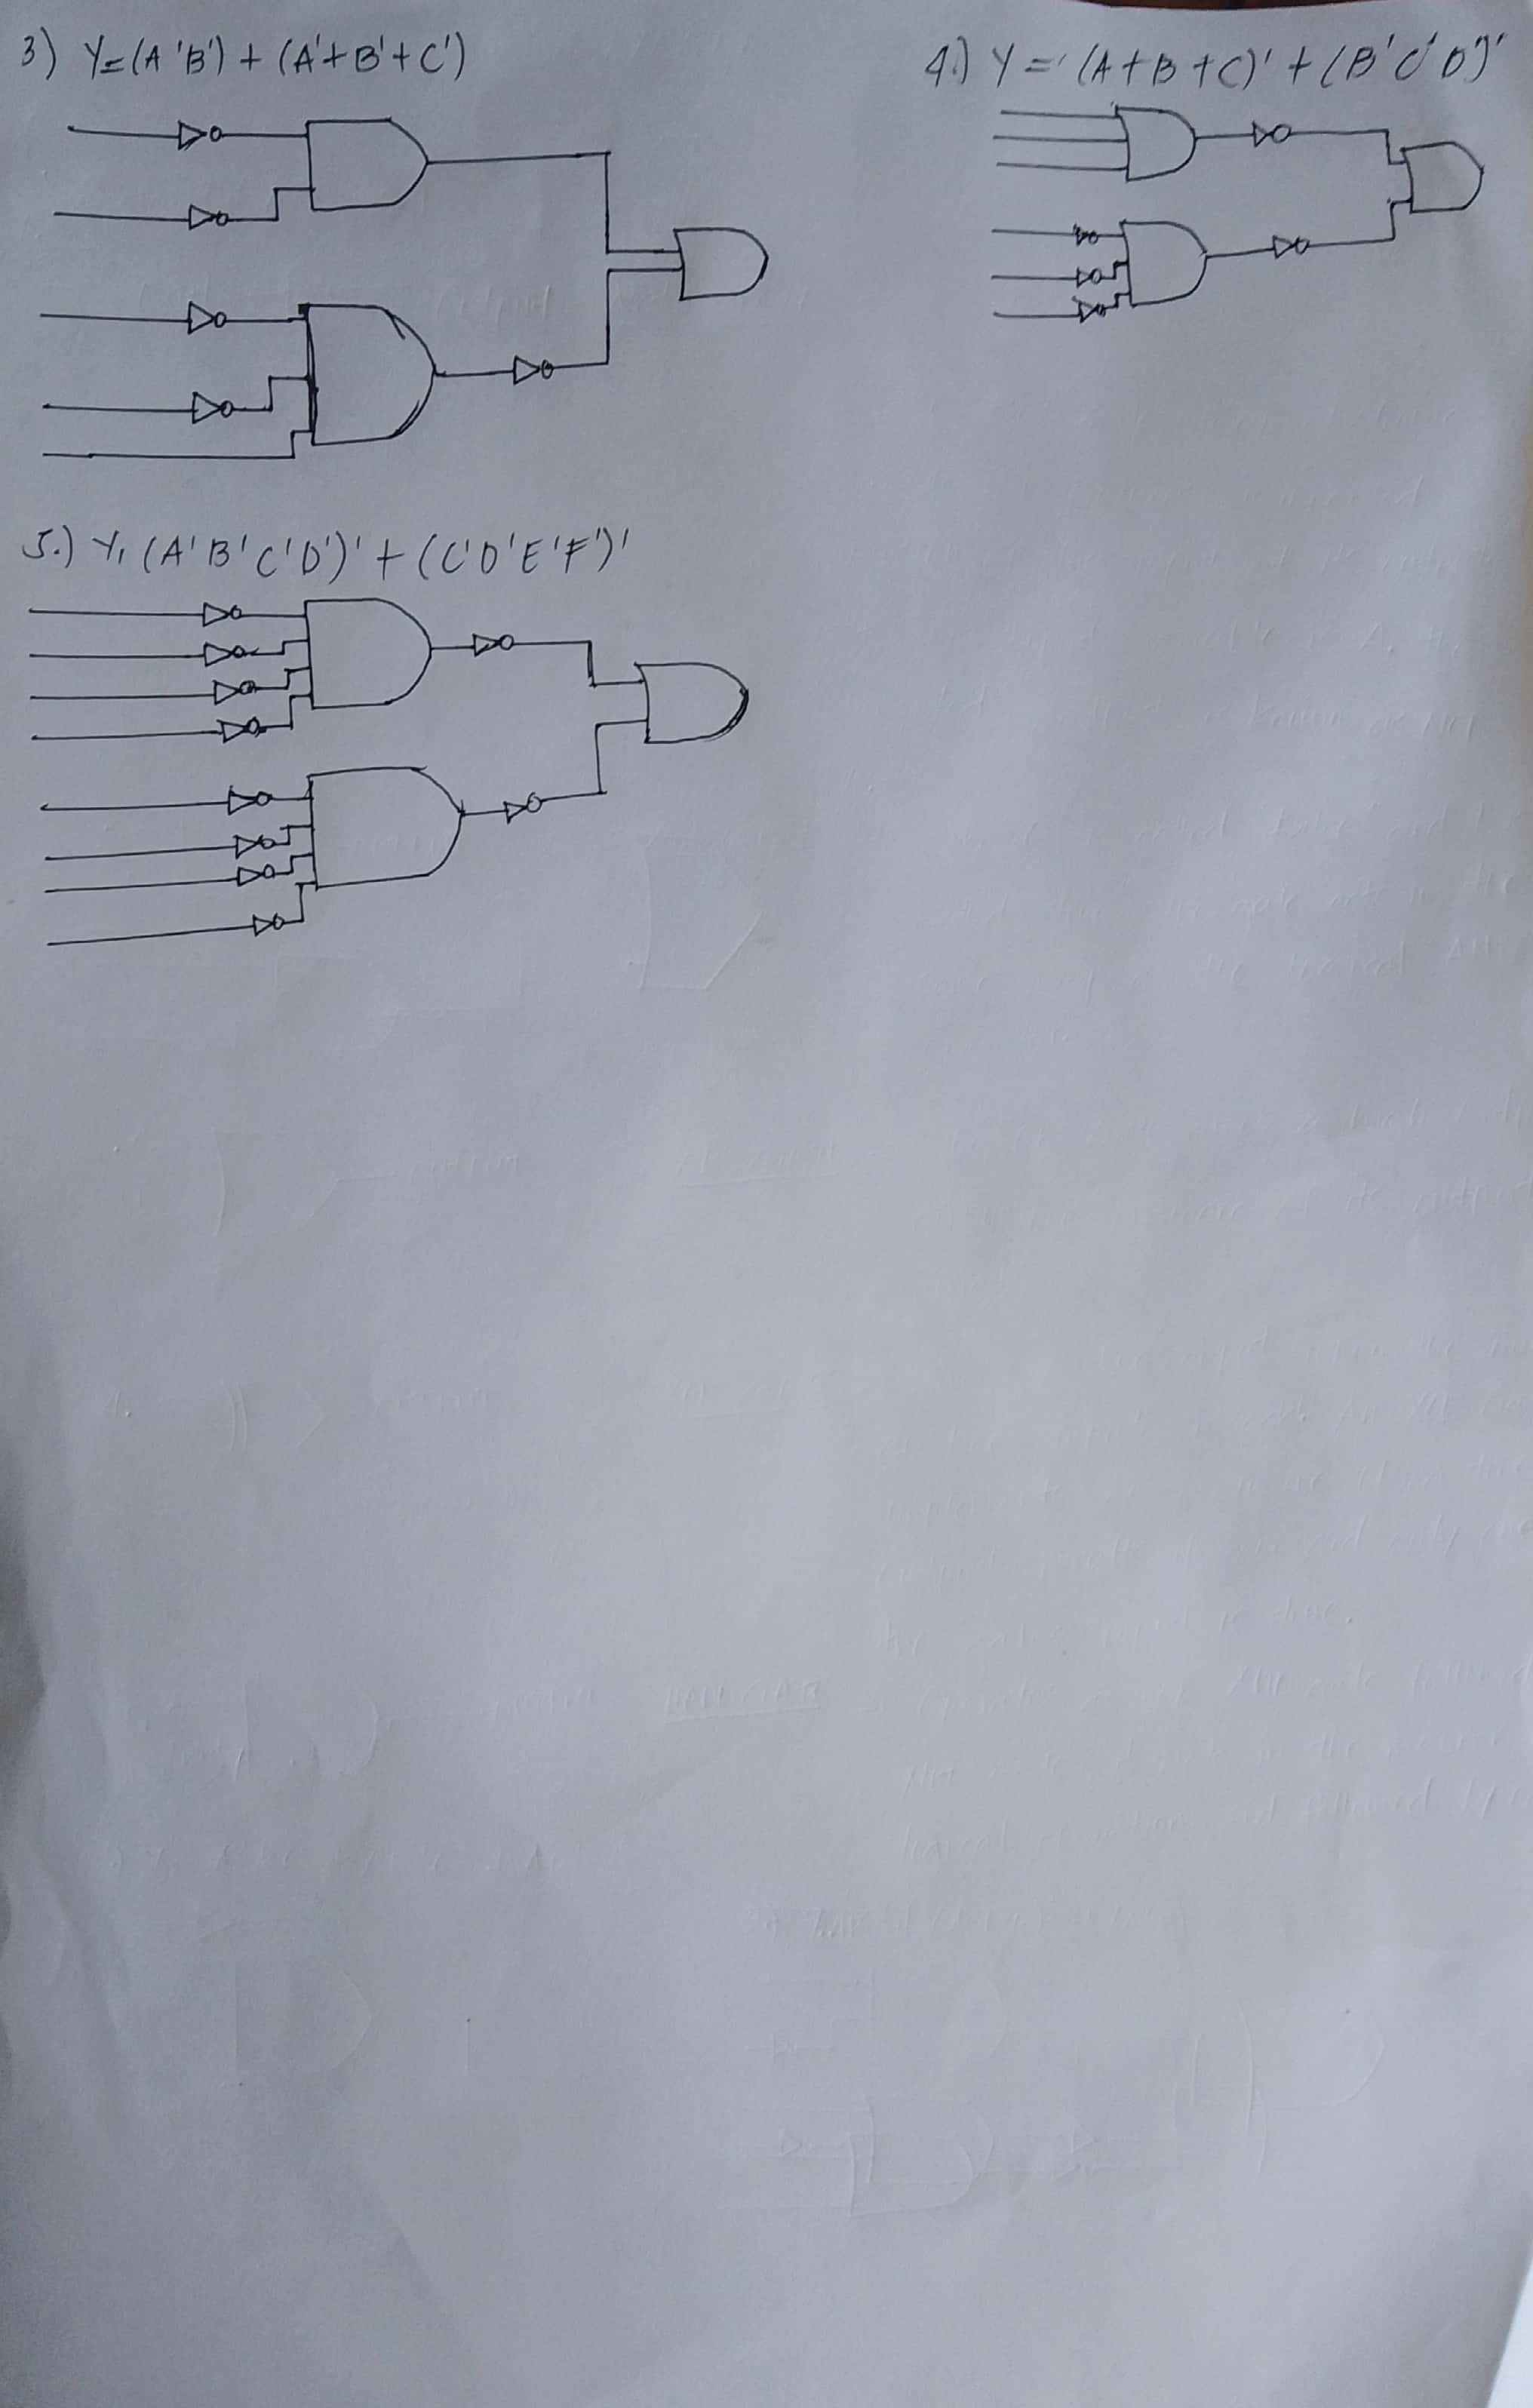 3) Y=(A'B')+(A'+B'+C')
4.) Y=(A+B+C)'+(B'C'D')'
5.) Y, (A'B'C'D')'+(C'D'E'F')'